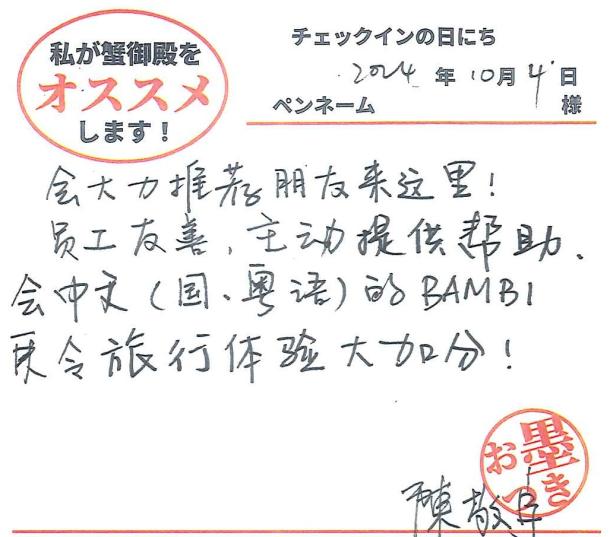 私が蟹御殿を
オススメ
します！
チェックインの日にち
2024 年 10月 4日
ペンネーム 様
会大力推荐朋友来这里！
员工友善、主动提供帮助.
会中文（国、粤语）的BAMBI
更令旅行体验大加分！
お墨
つき
陳敬